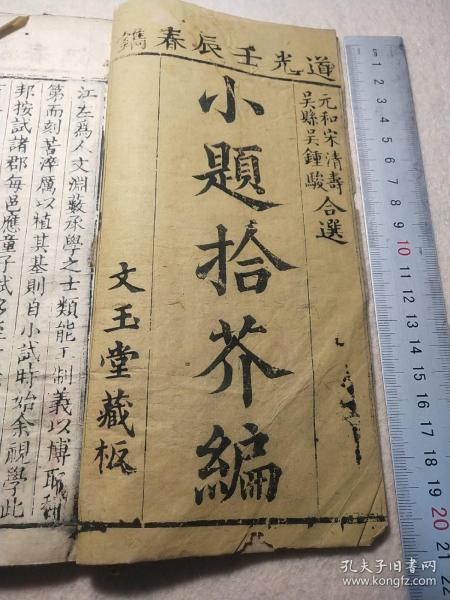 道光壬辰春鐫
元和宋清壽
吳縣吳鍾駿
合選
小題拾芥編
文玉堂藏板
江左爲人文淵藪承學之士類能工制義以博取科
第而刻苦淬厲以植其基則自小試時始余視學此
邦按試諸郡每邑應童子試
9 10 11 12 13 14 15 16 17 18 19 20 21
孔夫子旧书网
www.kongfz.com